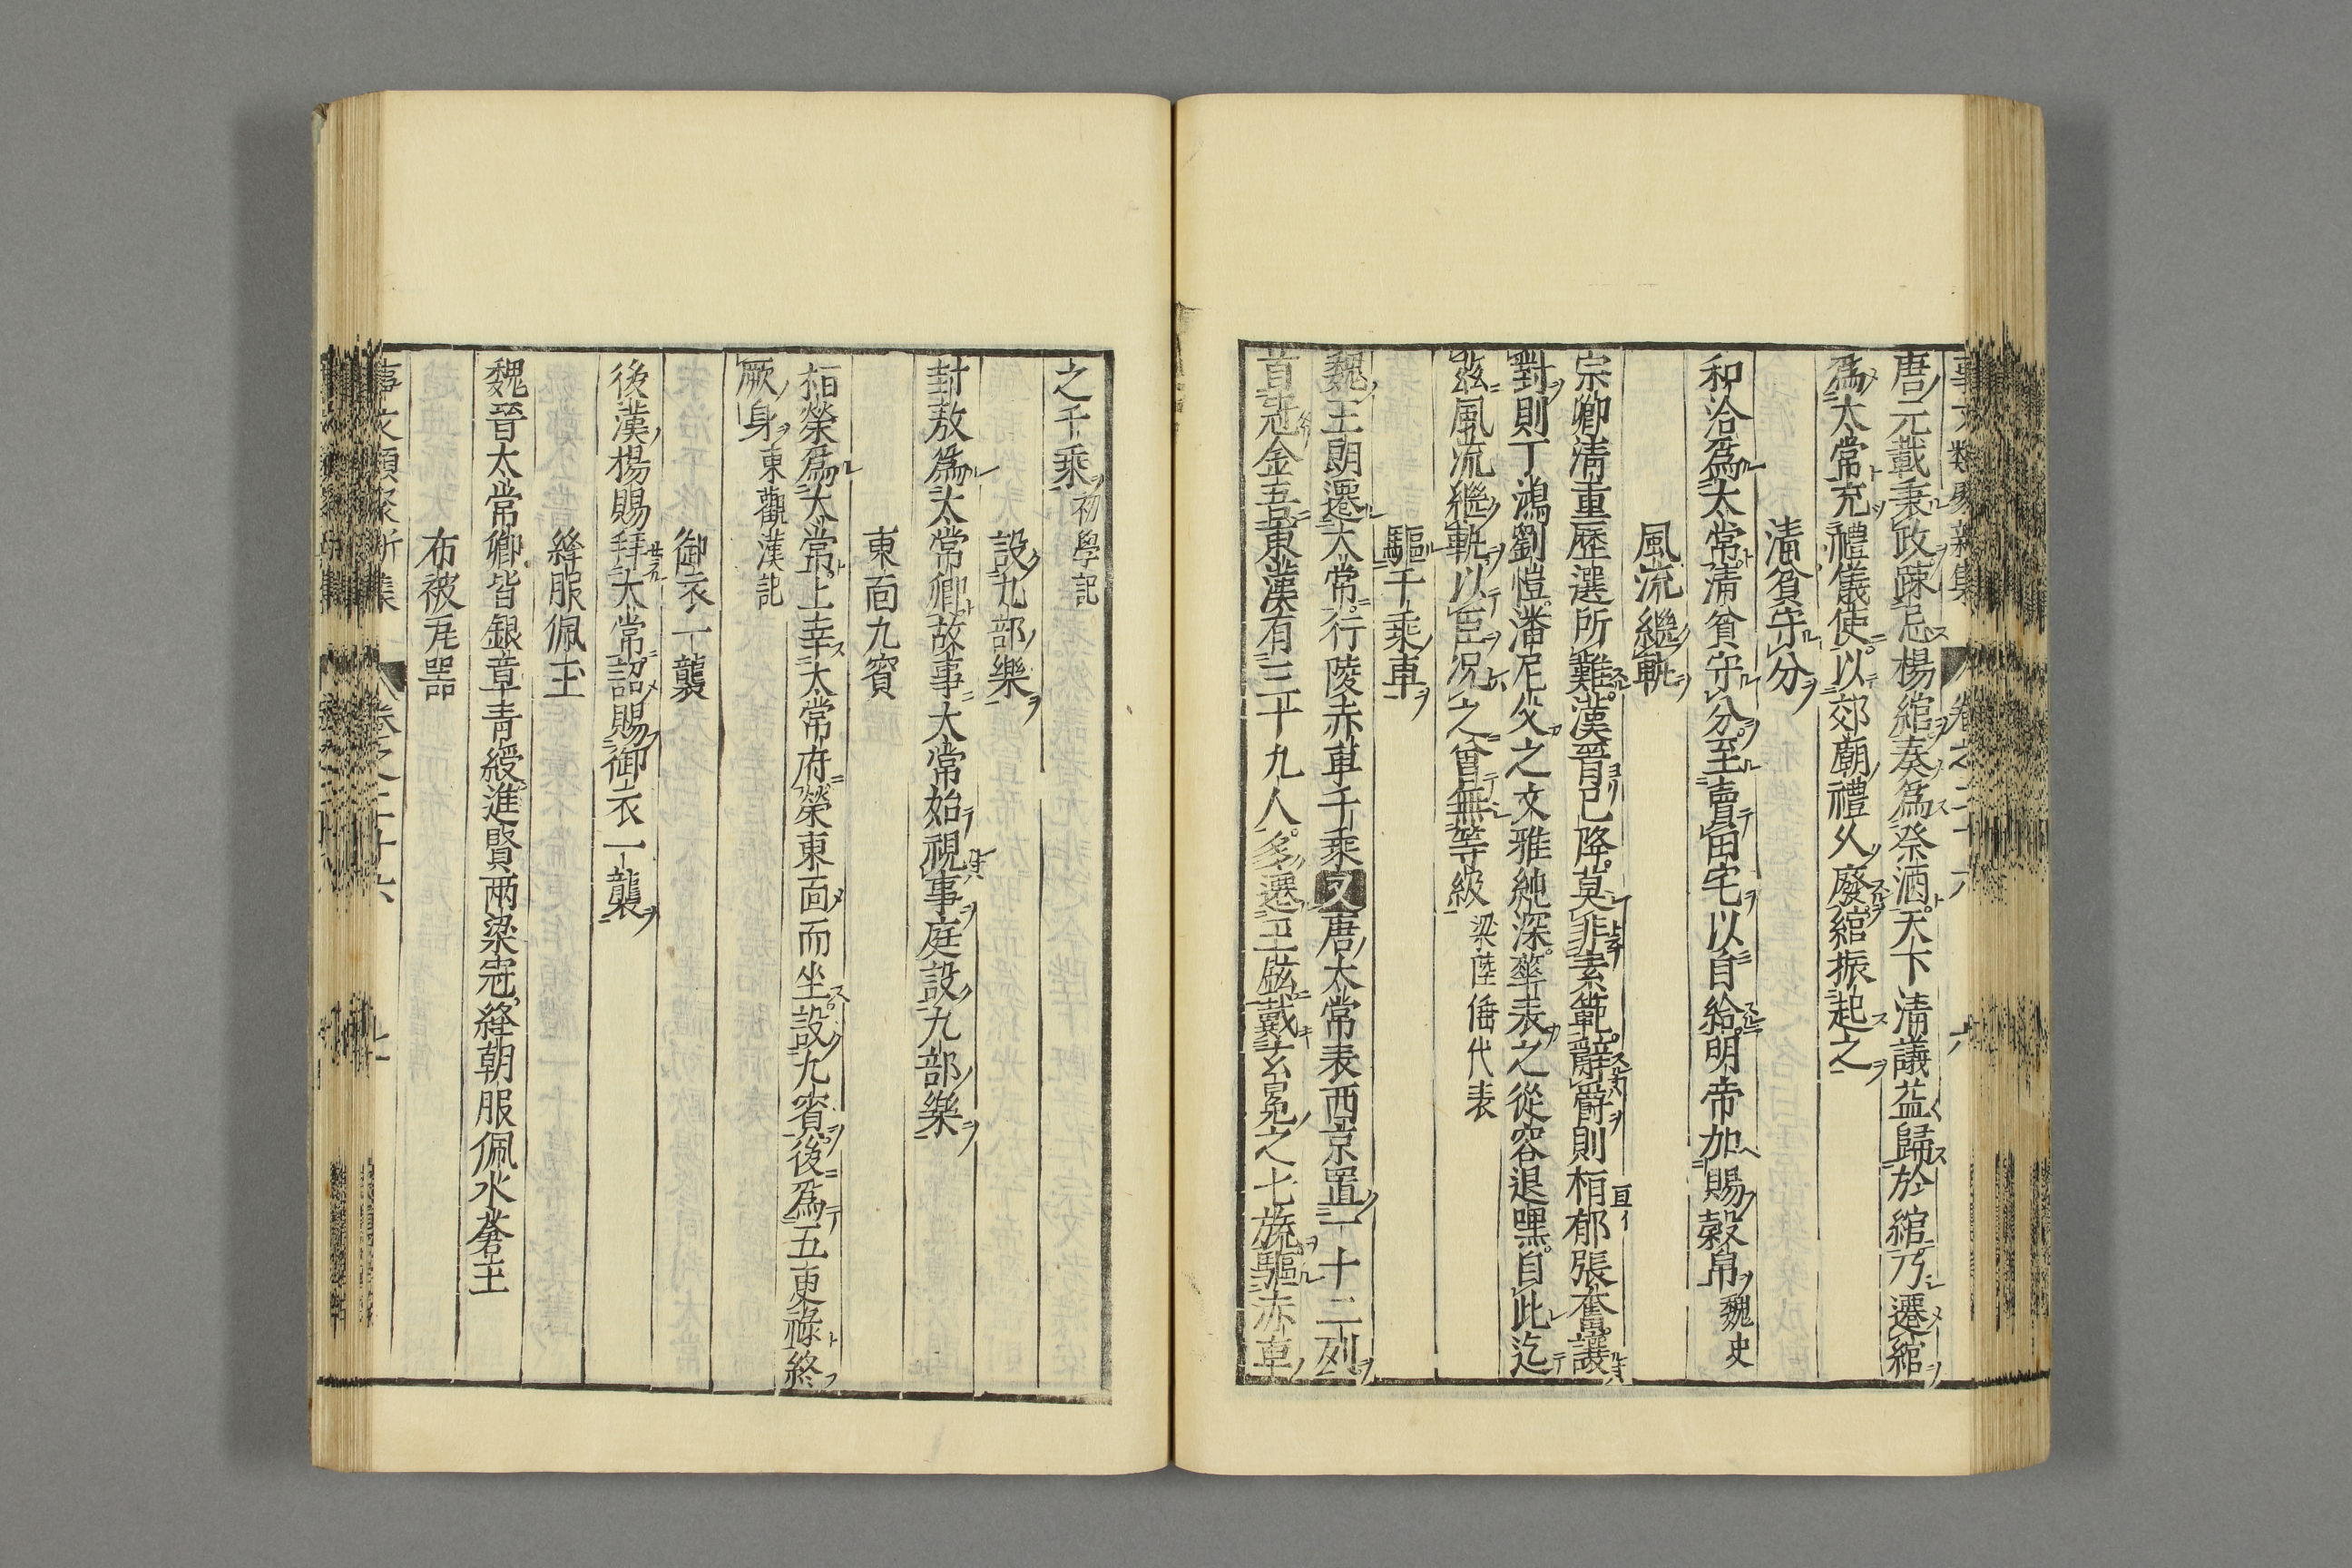 唐元載秉政疎忌楊綰奏爲祭酒天下清議益歸於綰乃遷綰
爲太常充禮儀使以郊廟禮久廢綰振起之
清貧守分
和洽爲太常清貧守分至賣田宅以自給明帝加賜榖帛魏史
風流繼軌
宗卿清重歴選所難漢晋已降莫非素範辭爵則栢郁張奮讓
對則丁鴻劉愷潘尼父之文雅純深華表之從容退嘿自此迄
兹風流繼軌以臣况之曾無等級梁陸倕代表
驅千乘車
魏王朗遷太常行陵赤車千乘又唐太常表西京置一十二列
首冠金吾東漢有三十九人多遷三鉉戴玄冕之七旒驅赤車
之千乘初學記
設九部樂
封敖爲太常卿故事太常始視事庭設九部樂
東面九賓
栢榮爲太常上幸太常府榮東面而坐設九賓後爲五更祿終
厥身東觀漢記
御衣一襲
後漢楊賜拜太常詔賜御衣一襲
絳服佩玉
魏晉太常卿皆銀章青綬進賢兩梁冠絳朝服佩水蒼玉
布被瓦器